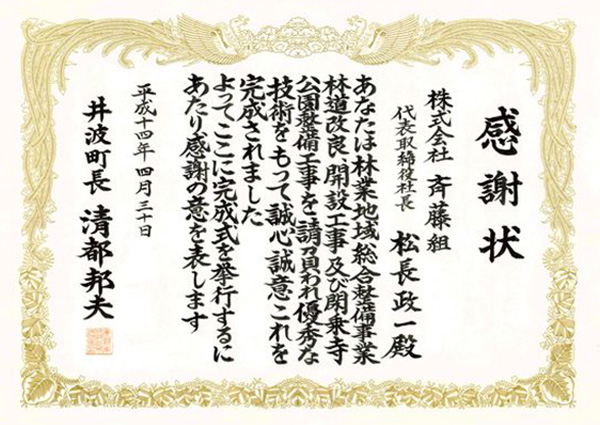 感謝状
株式会社 斉藤組
代表取締役社長 松長政一殿
あなたは林業地域総合整備事業
林道改良、開設工事及び閑乗寺
公園整備工事を請負われ優秀な
技術をもって誠心誠意これを
完成されました
よってここに完成式を挙行するに
あたり感謝の意を表します
平成十四年四月三十日
井波町長 清都邦夫